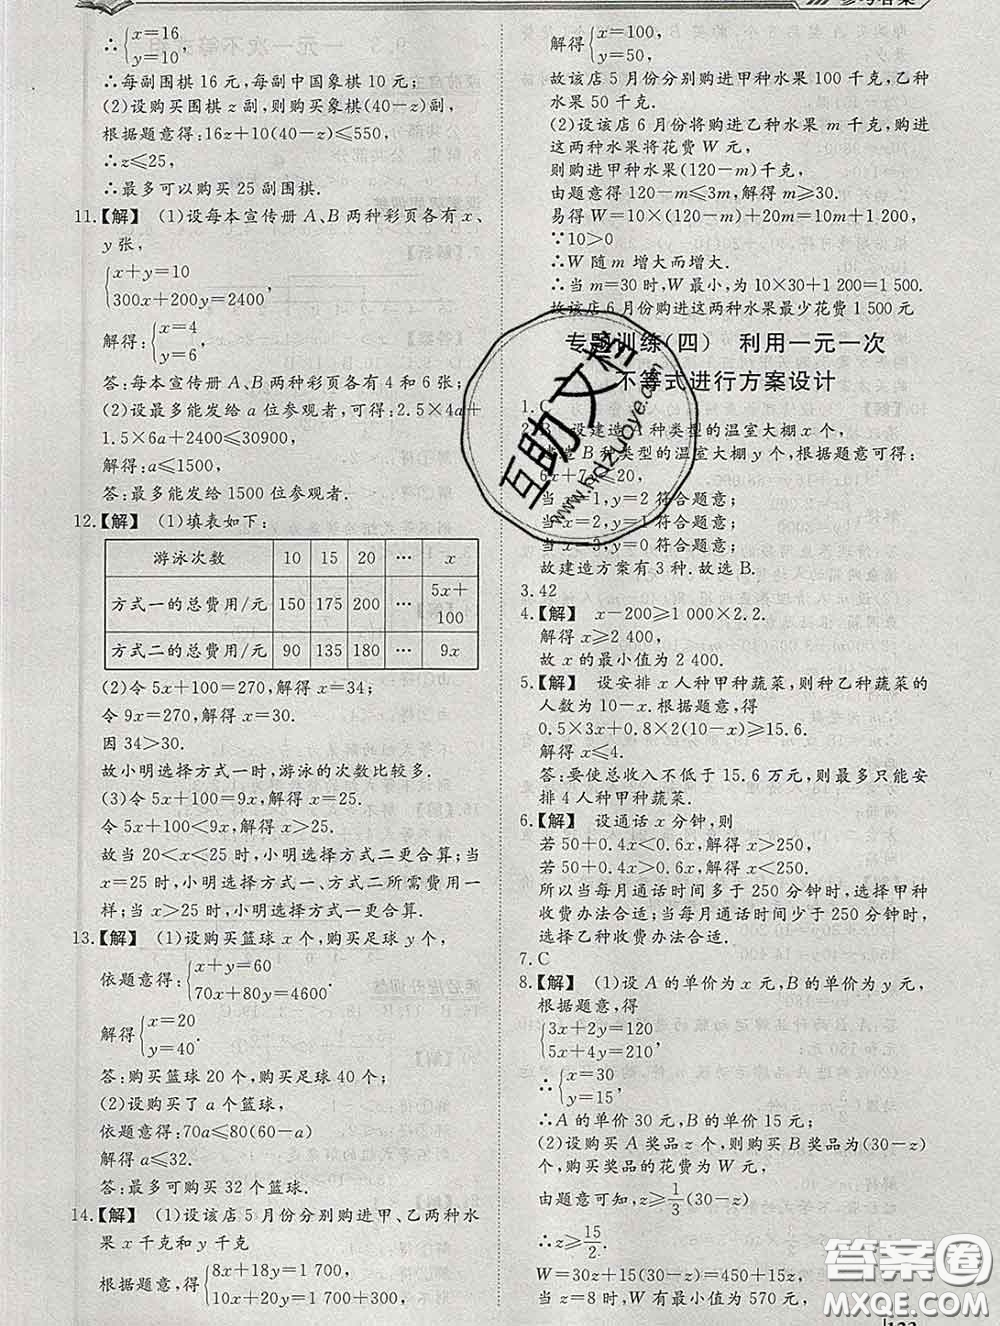 参考答案
∴{x=16
y=10,
∴每副围棋 16 元,每副中国象棋 10 元.
(2)设购买围棋 z 副,则购买象棋(40－z)副,
根据题意得:16z+10(40－z)≤550,
∴z≤25,
∴最多可以购买 25 副围棋.
11.【解】 (1)设每本宣传册 A、B 两种彩页各有 x、
y 张,
{x+y=10
300x+200y=2400,
解得:{x=4
y=6,
答:每本宣传册 A、B 两种彩页各有 4 和 6 张;
(2)设最多能发给 a 位参观者,可得:2.5×4a+
1.5×6a+2400≤30900,
解得:a≤1500,
答:最多能发给 1500 位参观者.
12.【解】 (1)填表如下:
游泳次数 10 15 20 … x
方式一的总费用/元 150 175 200 … 5x+
100
方式二的总费用/元 90 135 180 … 9x
(2)令 5x+100=270,解得 x=34;
令 9x=270,解得:x=30.
因 34>30.
故小明选择方式一时,游泳的次数比较多.
(3)令 5x+100=9x,解得 x=25.
令 5x+100<9x,解得:x>25.
故当 20<x<25 时,小明选择方式二更合算;当
x=25 时,小明选择方式一、方式二所需费用一
样,当 x>25 时,小明选择方式一更合算.
13.【解】 (1)设购买篮球 x 个,购买足球 y 个,
依题意得:{x+y=60
70x+80y=4600.
解得{x=20
y=40.
答:购买篮球 20 个,购买足球 40 个;
(2)设购买了 a 个篮球,
依题意得:70a≤80(60－a)
解得 a≤32.
答:最多可购买 32 个篮球.
14.【解】 (1)设该店 5 月份分别购进甲、乙两种水
果 x 千克和 y 千克
根据题意得:{8x+18y=1 700,
10x+20y=1 700+300,
解得{x=100,
y=50,
故该店 5 月份分别购进甲种水果 100 千克,乙种
水果 50 千克.
(2)设该店 6 月份将购进乙种水果 m 千克,购进
这两种水果将花费 W 元,
则购进甲种水果(120－m)千克.
由题意得120－m≤3m,解得 m≥30.
易得 W=10×(120－m)+20m=10m+1 200,
∵10>0
∴W 随 m 增大而增大.
∴当 m=30 时,W最小,为 10×30+1 200=1 500.
故该店 6 月份购进这两种水果最少花费 1 500 元
专题训练(四) 利用一元一次
不等式进行方案设计
1.C
2.B 设建造 A 种类型的温室大棚 x 个,
B 种类型的温室大棚 y 个,根据题意可得:
6x+7y≤20,
当 x=1,y=2 符合题意;
当 x=2,y=1 符合题意;
当 x=3,y=0 符合题意;
故建造方案有 3 种.故选 B.
3.42
4.【解】 x－200≥1 000×2.2.
解得 x≥2 400.
故 x 的最小值为 2 400.
5.【解】 设安排 x 人种甲种蔬菜,则种乙种蔬菜的
人数为 10－x.根据题意,得
0.5×3x+0.8×2(10－x)≥15.6.
解得 x≤4.
答:要使总收入不低于 15.6 万元,最多只能安
排 4 人种甲种蔬菜.
6.【解】 设通话 x 分钟,则
若 50+0.4x<0.6x,解得 x>250,
若 50+0.4x>0.6x,解得 x<250.
所以当每月通话时间多于 250 分钟时,选择甲种
收费办法合适;当每月通话时间少于 250 分钟时,
选择乙种收费办法合适.
7.C
8.【解】 (1)设 A 的单价为 x 元,B 的单价为 y 元,
根据题意,得
{3x+2y=120
5x+4y=210,
∴{x=30
y=15,
∴A 的单价 30 元,B 的单价 15 元;
(2)设购买 A 奖品 z 个,则购买 B 奖品为(30－z)
个,购买奖品的花费为 W 元,
由题意可知,z≥1/3(30－z)
∴z≥15/2.
W=30z+15(30－z)=450+15z,
当 z=8 时,W 有最小值为 570 元,
互助文档
www.hdzuoye.com
答案圈
MXQE.COM